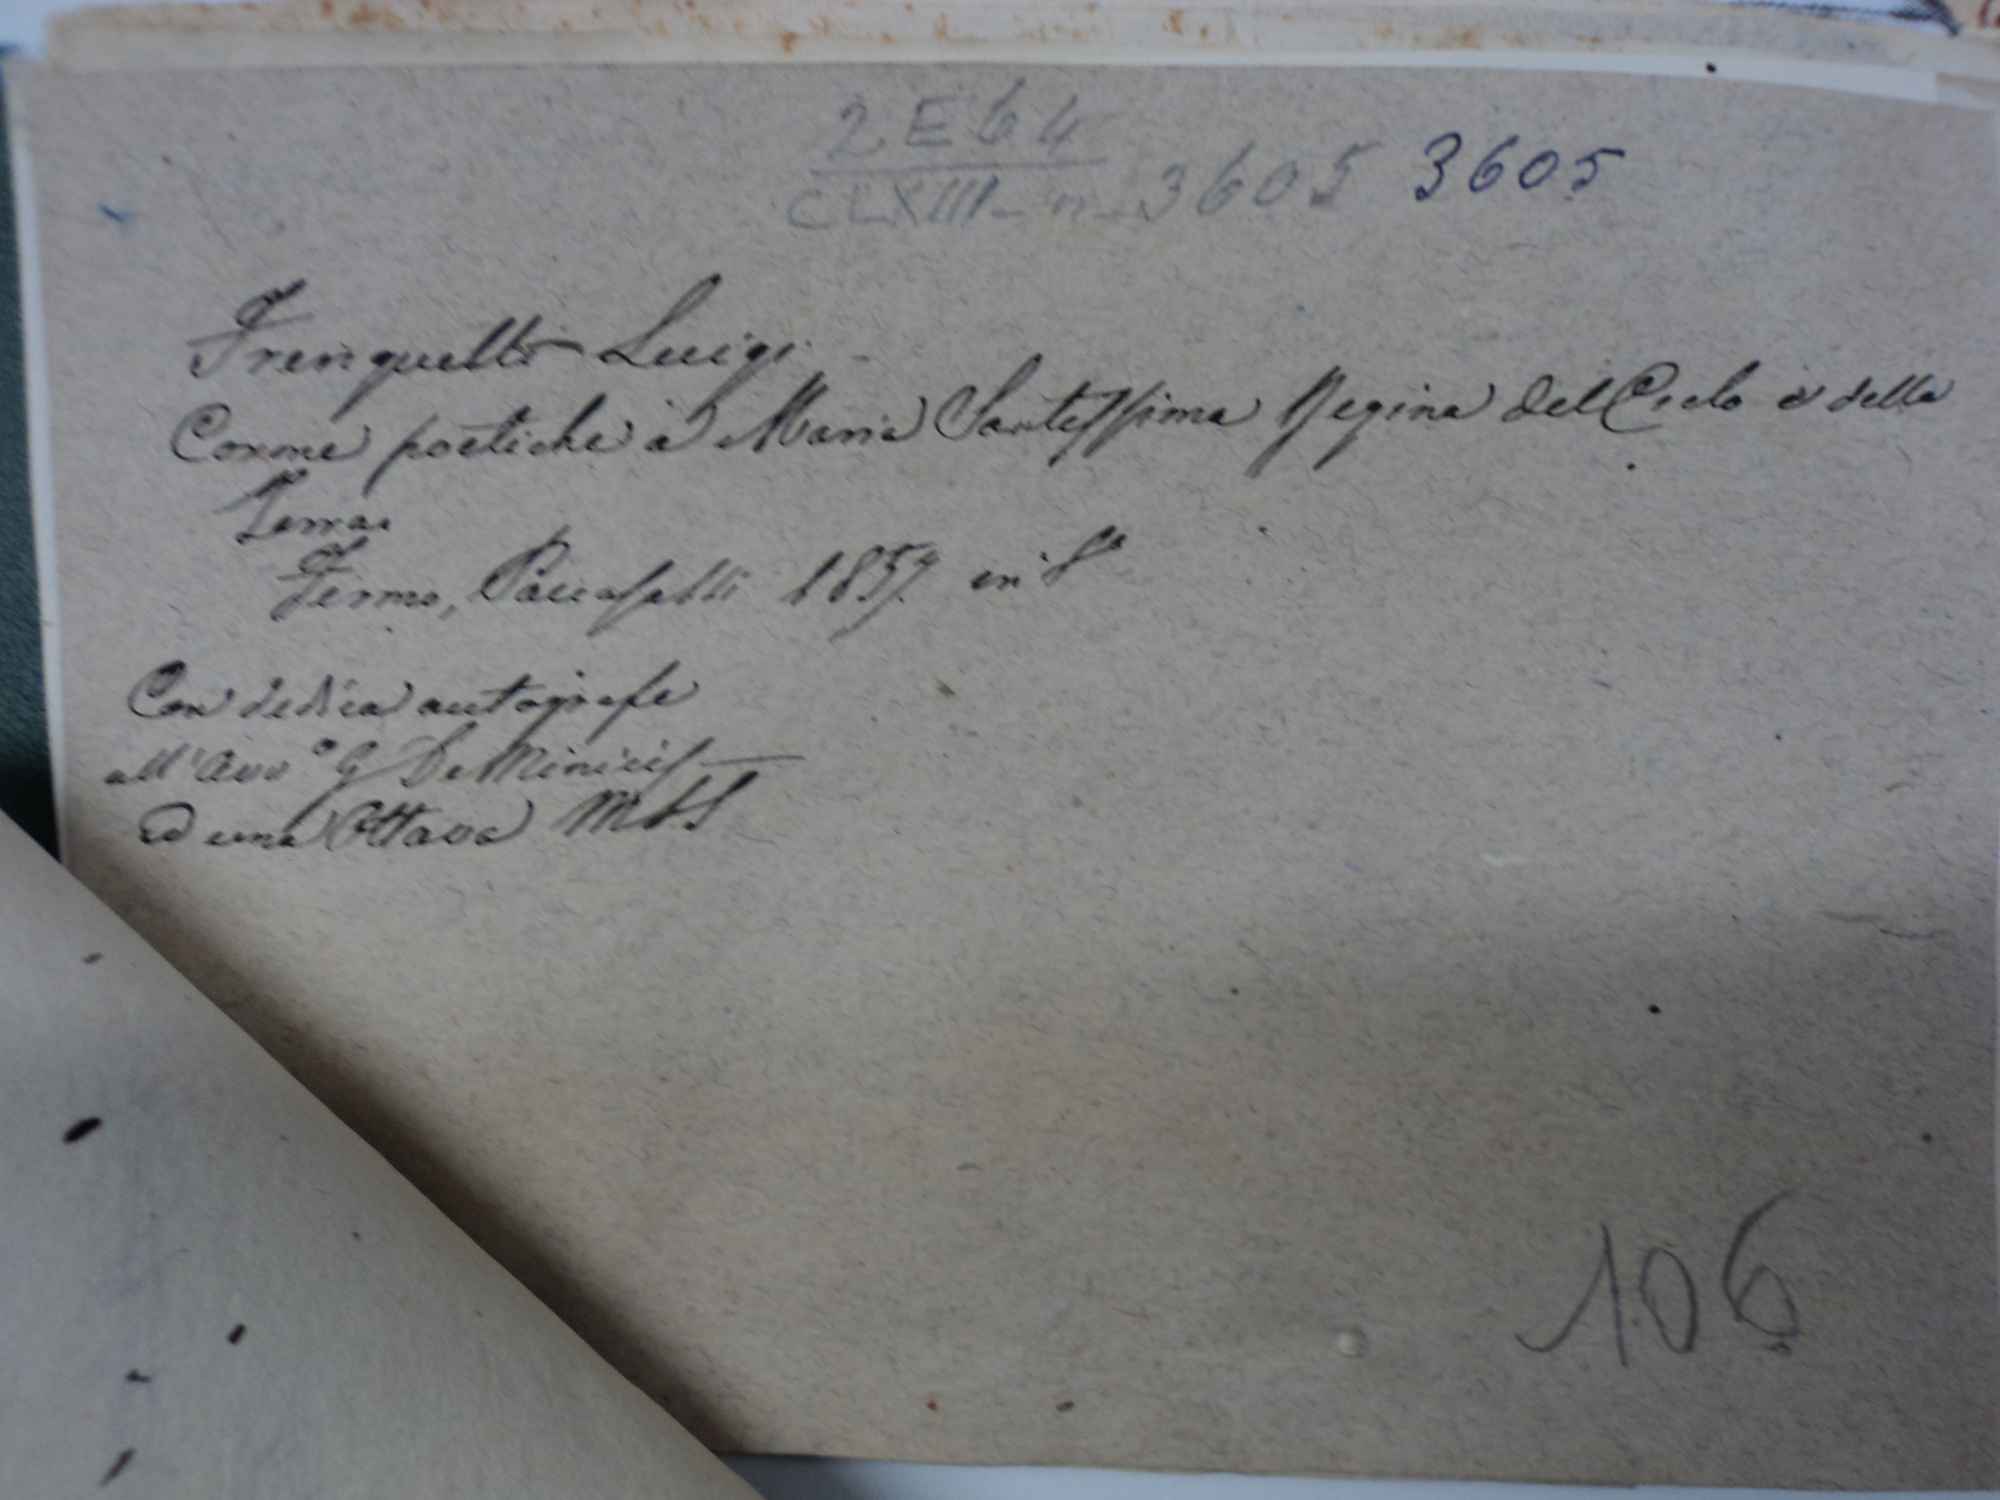 2 E 6 4
CLXIII - n - 3605 3605
Frenquelli Luigi
Corone poetiche a Maria Santissima Regina del Cielo e della
Terra.
Fermo, Paccasassi 1857. in 8°
Con dedica autografa
all'Avv.° G De Minicis
ed una Ottava
106